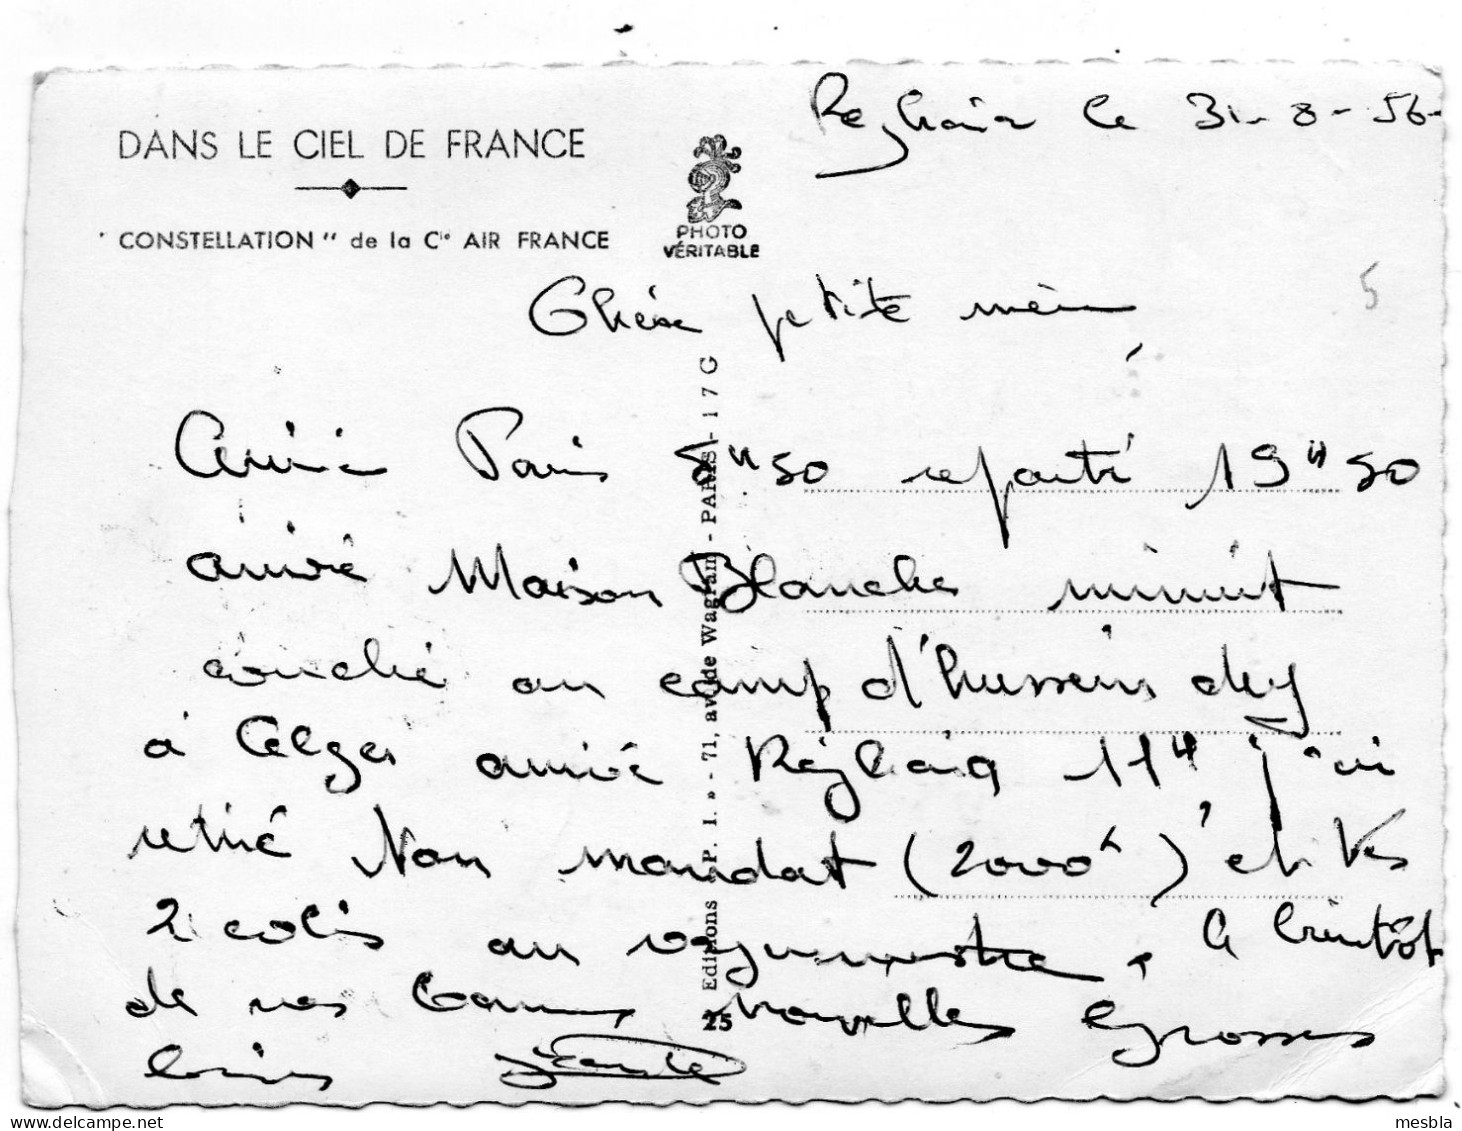 Reghaïa le 31-8-56-
DANS LE CIEL DE FRANCE
CONSTELLATION " de la Cie AIR FRANCE
PHOTO
VÉRITABLE
5
Chère petite mère
Arrivé Paris 8H50 reparti 19H50
arrivé Maison Blanche minuit
couché au camp d'hussein dey
à Alger arrivé Réghaïa 11H j'ai
retiré mandat (2000F) et
2 colis au vaguemestre. A bientôt
de vos bonnes nouvelles Grosses
bises
Editions "P. I." - 71, av. de Wagram - PARIS - 17 G
25
mesbla